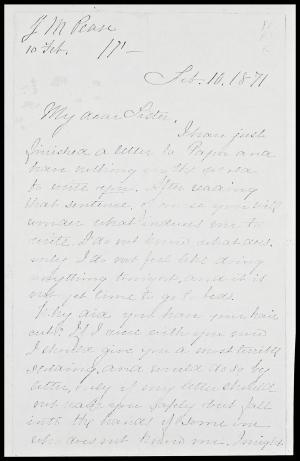 J M Pease
10 Feb. 171-
Feb. 10, 1871
My dear Sister,
I have just
finished a letter to Papa and
have nothing in the world
to write you. After reading
that sentence, of course you will
wonder what induces me to
write. I do not know what does,
only I do not feel like doing
anything tonight, and it is
not yet time to go to bed.
Why did you have your hair
cut? If I were with you now
I should give you a most terrible
scolding, and would do so by
letter, only if my letter should
not reach you safely but fall
into the hands of some one
who does not know me, I might